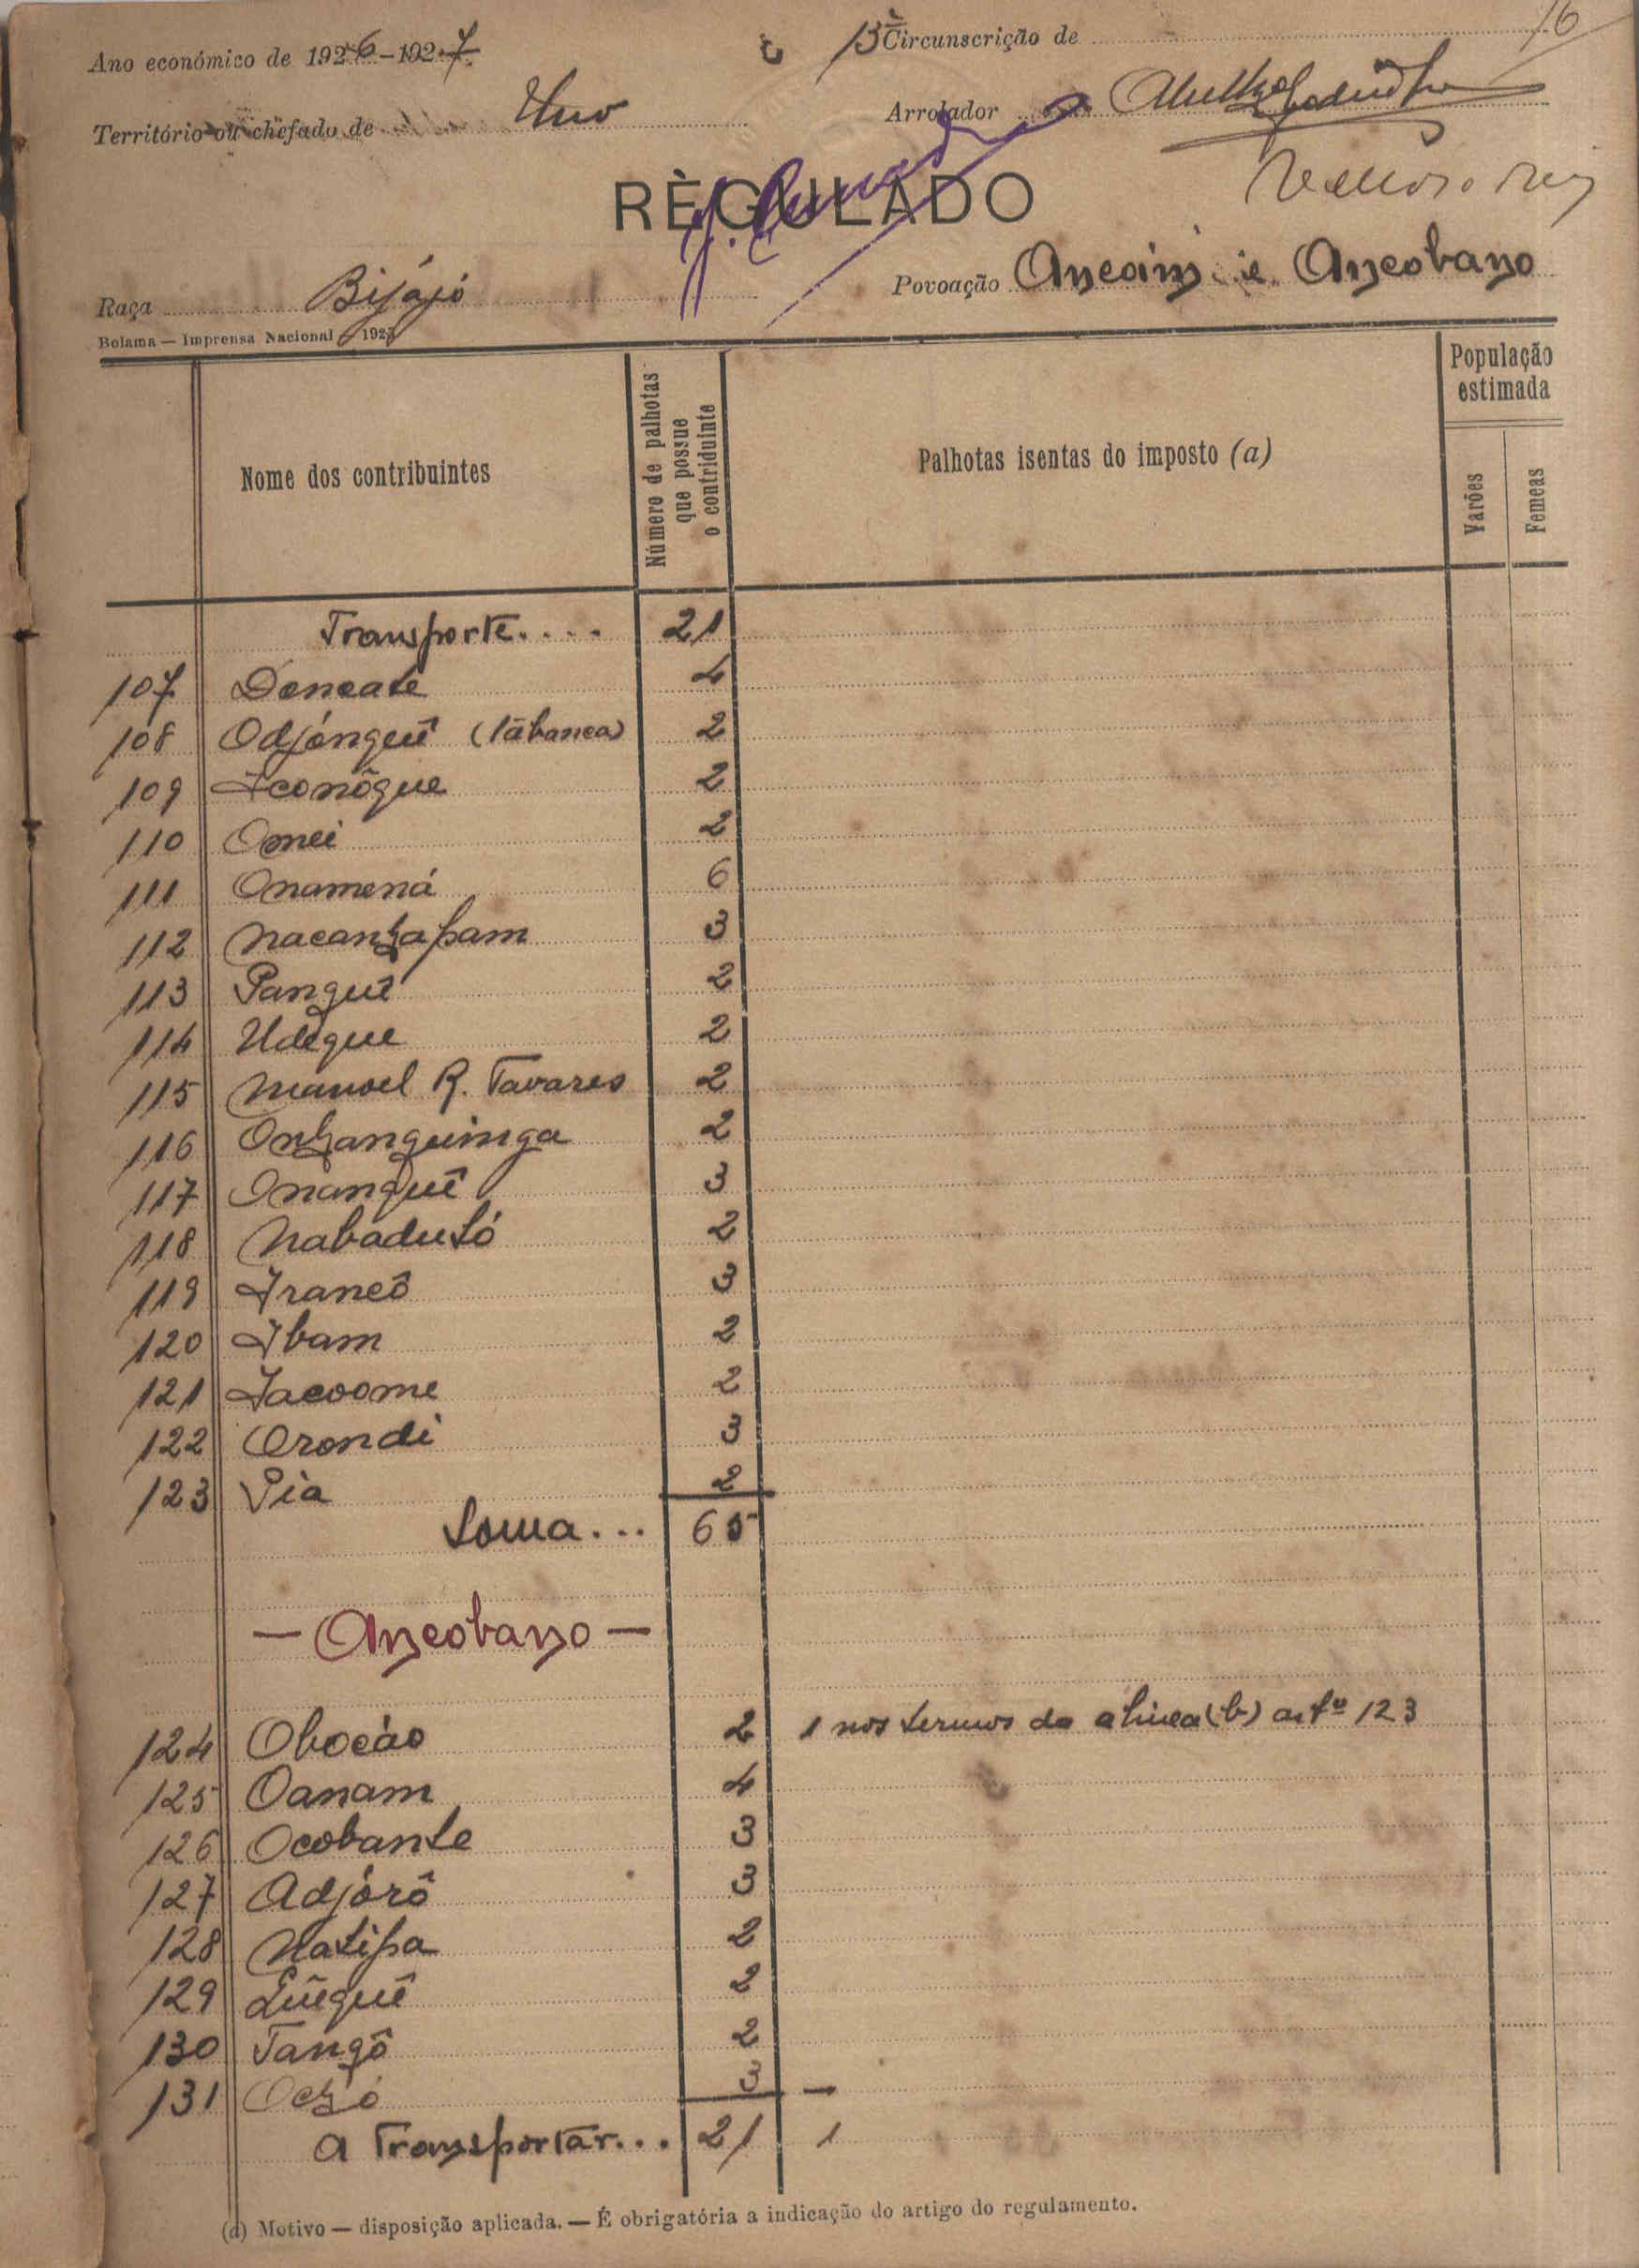 16
Ano económico de 1926-1927. 13ª Circunscrição de
Território ou chefado de Uno Arrolador
RÈGULADO
Raça Bijágó Povoação Ancoim e Ancobano
Bolama — Imprensa Nacional — 192
Nome dos contribuintes
Número de palhotas que possue o contriduinte
Palhotas isentas do imposto (a)
População estimada
Varões
Femeas
Transporte.... 21
107 Doncate 4
108 Odjónguê (tabanca) 2
109 Iconôgue 2
110 Omei 2
111 Onamená 6
112 Nacanhapam 3
113 Panguê 2
114 Udégue 2
115 Manoel R. Tavares 2
116 Onhanguinga 2
117 Inanguê 3
118 Nabadutó 2
119 Irancô 3
120 Ibam 2
121 Jacoome 2
122 Orondi 3
123 Pia 2
Soma... 65
— Ancobano —
124 Obocáo 2 1 nos termos da alinea (b) artº 123
125 Oanam 4
126 Ocobante 3
127 Adjórô 3
128 Natipa 2
129 2
130 Tangô 2
131 Ochó 3
A Transportar... 21 1
(a) Motivo — disposição aplicada. — É obrigatória a indicação do artigo do regulamento.